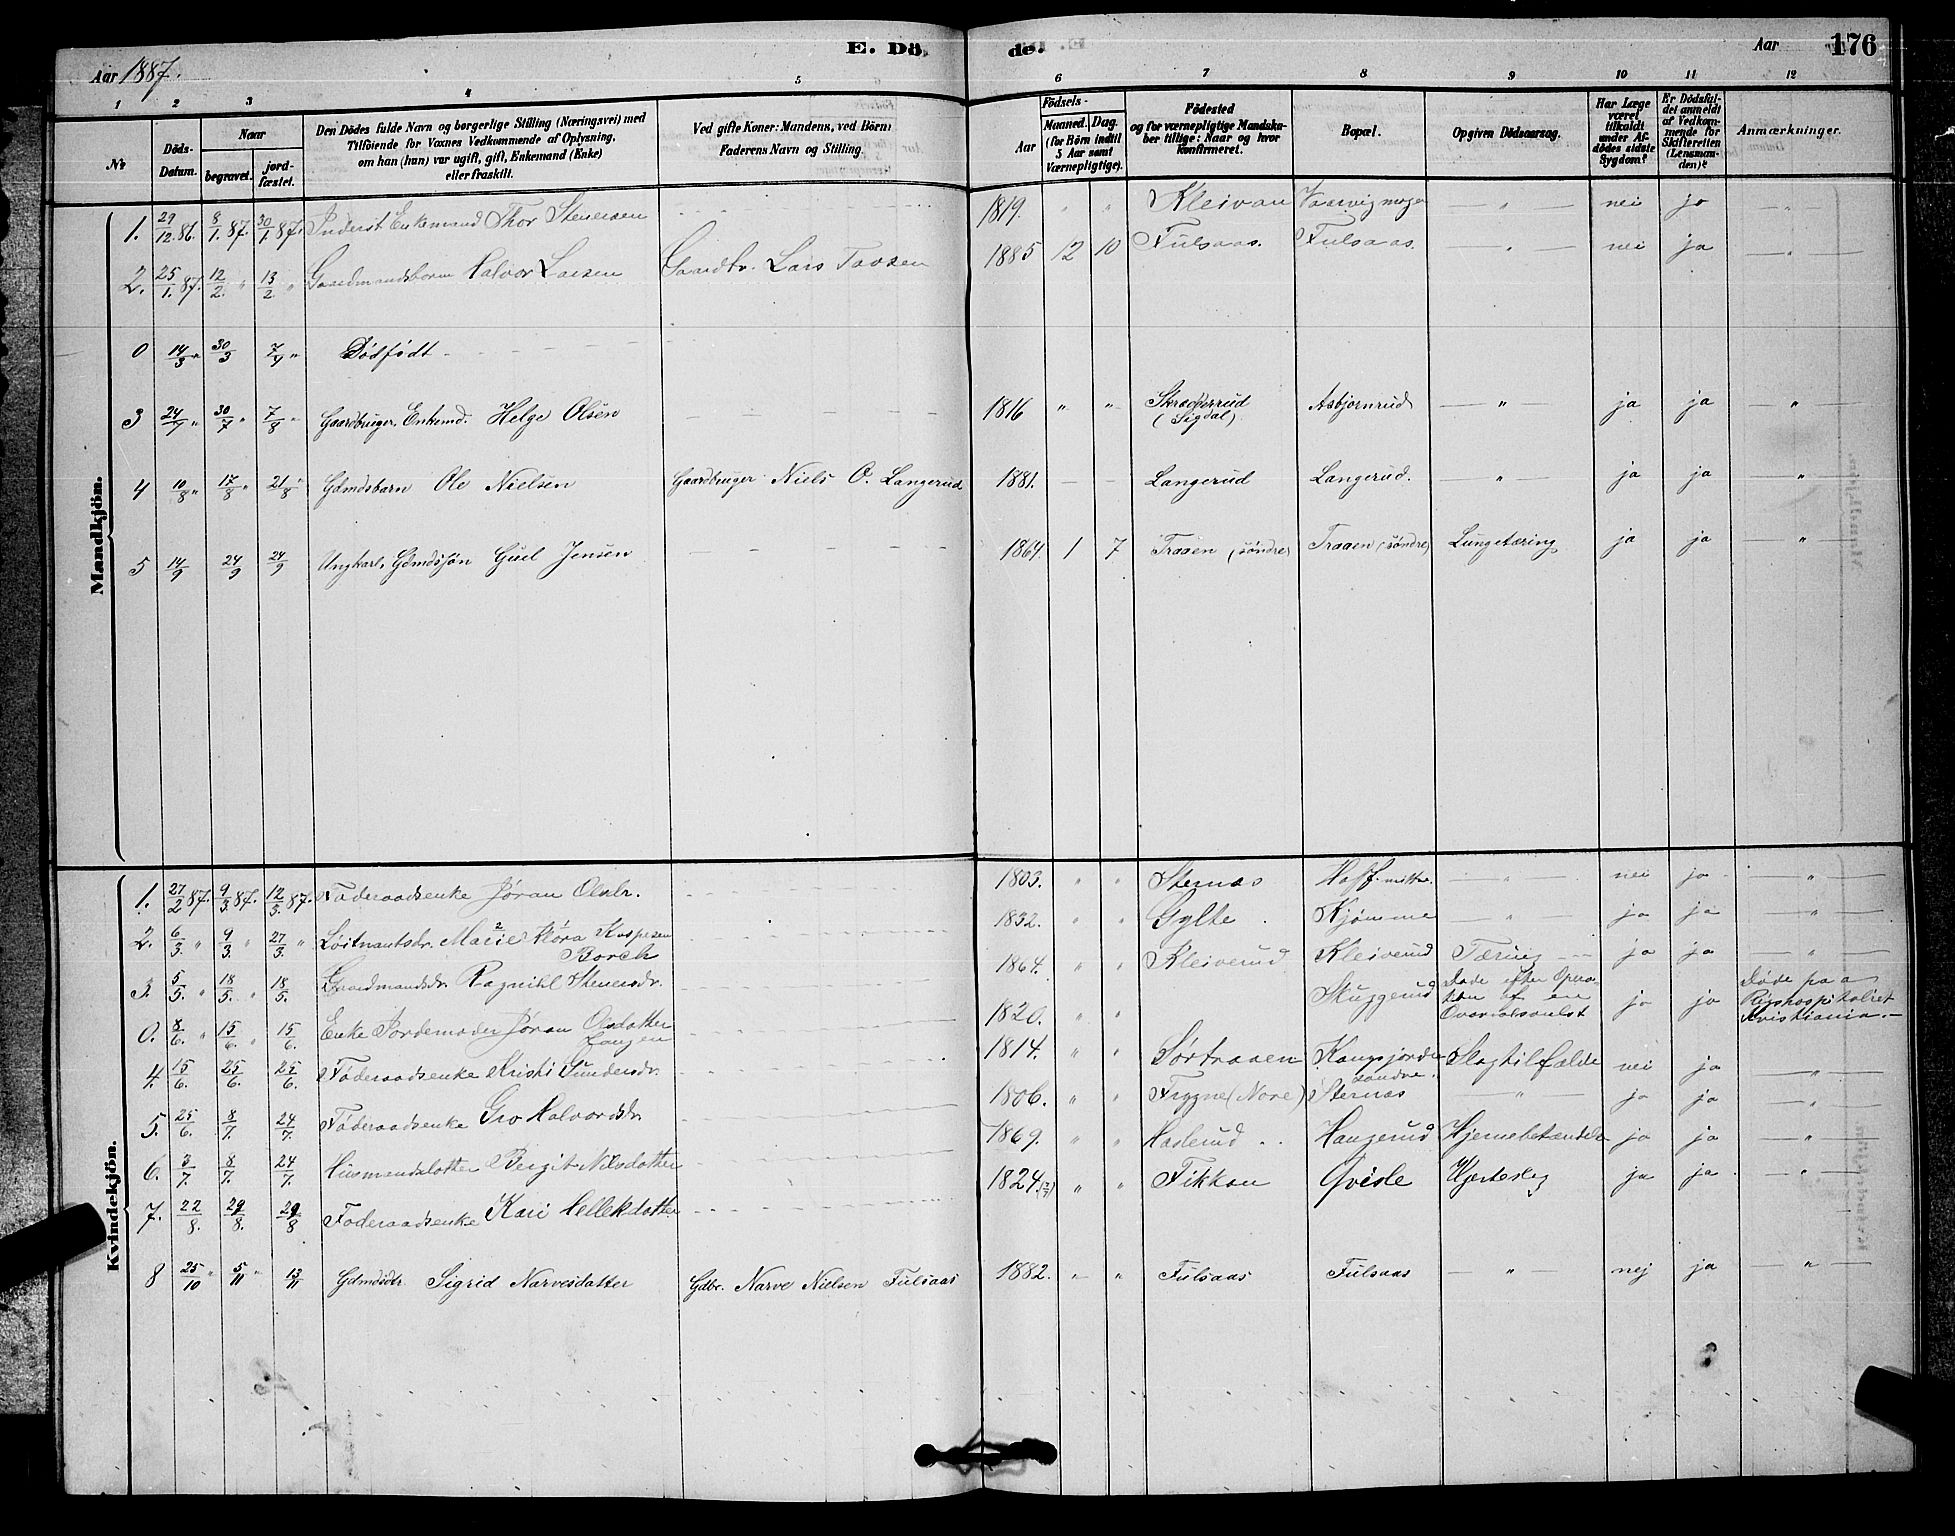 E. Dö de.
Aar 1887.
Aar 176
1 2 3 4 5 6 7 8 9 10 11 12
No
Döds-Datum.
Naar
begravet.
jord-fæstet.
Den Dödes fulde Navn og borgerlige Stilling (Næringsvei) med
Tilföiende for Voxnes Vedkommende af Oplysning,
om han (hun) var ugift, gift, Enkemand (Enke)
eller fraskilt.
Ved gifte Koner: Mandens, ved Börn:
Faderens Navn og Stilling.
Födsels-
Aar
Maaned. Dag.
(for Börn indtil
3 Aar samt
Værnepligtige).
Födested
og for værnepligtige Mandska-
ber tillige: Naar og hvor
konfirmeret.
Bopæl.
Opgiven Dödsaarsag.
Har Læge
været
tilkaldt
under Af-
dödes sidste
Sygdom?
Er Dödsfal-
det anmeldt
af Vedkom-
mende for
Skifteretten
(Lensman-
den)?
Anmærkninger.
Mandkjön.
1. 29/12.86. 8/1.87. 30/1.87. Inderst Enkemand Thor Stenersen 1819. " " Kleivan — " — nei ja — " —
2. 25/1.87. 12/2. " 13/2 " Gaardmandsbarn Halvor Larsen Gaardbr. Lars Tovsen 1885 12 10 Fulsaas. Fulsaas. — " — nei ja — " —
0 14/3 " 30/3 7/4 " Dödfödt
3 24/7 " 30/7 " 7/8 " Gaardbruger. Enkemd. Helge Olsen 1816 " " Skrædderrud (Sigdal) Asbjørnrud " ja ja "
4 10/8 " 17/8 " 21/8 " Gdmdsbarn Ole Nielsen Gaardbruger Niels O. Langerud 1881. — — Langerud Langerud. " ja ja "
5 14/9 24/9 24/9 Ungkarl, Gdmdssøn Guul Jensen 1864. 1 7 Traaen (söndre) Traaen (söndre) Lungetæring ja ja "
Kvindekjön.
1. 27/2 87. 9/3 87. 12/3 87. Föderaadsenke Jöran Olsdr. 1803. " " Sternæs Hoff. mittre. — " — nei ja — " —
2. 6/3 " 9/3 " 27/3 " Löitnantsdr. Marie Kaspersen Borch 1832. " " Gylte Kjömme — " — ja ja — " —
3. 5/5. " 18/5. " 18/5. Gaardmandsdr. Ragnihl Stenersdr. 1864. " " Kleiverud Kleiverud Tæring ja ja — " —
0. 8/6. " 15/6. " 15/6. Enke Jordemoder Jöran Olsdatter Langen 1820. " " Skuggerud Døde efter Opera-tion af en Ovarialsvulst ja ja Døde paa Rigshospitalet Kristiania. —
4. 15/6. 25/6. 25/6. Föderaadsenke Kristi Gundersdr. 1814. " " Sörtraaen Kongsjorden söndre. Slagtilfælde nei ja — " —
5. 25/6. 8/7. 24/7. Föderaadsenke Gro Halvordsdr. 1806. " " Frygne (Nore) Sternæs — " — ja ja — " —
6. 3/7. 8/7. 24/7. Husmandsdatter Bergit Nilsdotter 1869. " " Haslerud Haugerud Hjernebetændelse ja ja — " —
7. 22/8. 29/8. 29/8 Föderaadsenke Kari Helleksdotter 1824. " " Fikkan Qvisle Hjerteslag ja ja — " —
8 25/10 " 5/11 " 13/11 Gdmdsdtr Sigrid Narvesdatter Gdbr. Narve Nielsen Fulsaas 1882. " " Fulsaas Fulsaas — " — nej ja — " —